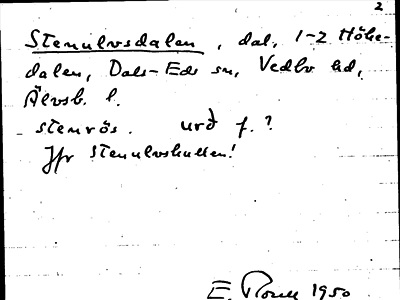 2
Stenulvsdalen, dal, 1-2 Höke-
dalen, Dals-Eds sn, Vedbo hd,
Älvsb. l.
stenrös. urð f.?
Jfr Stenulvskullen!
E. 1950